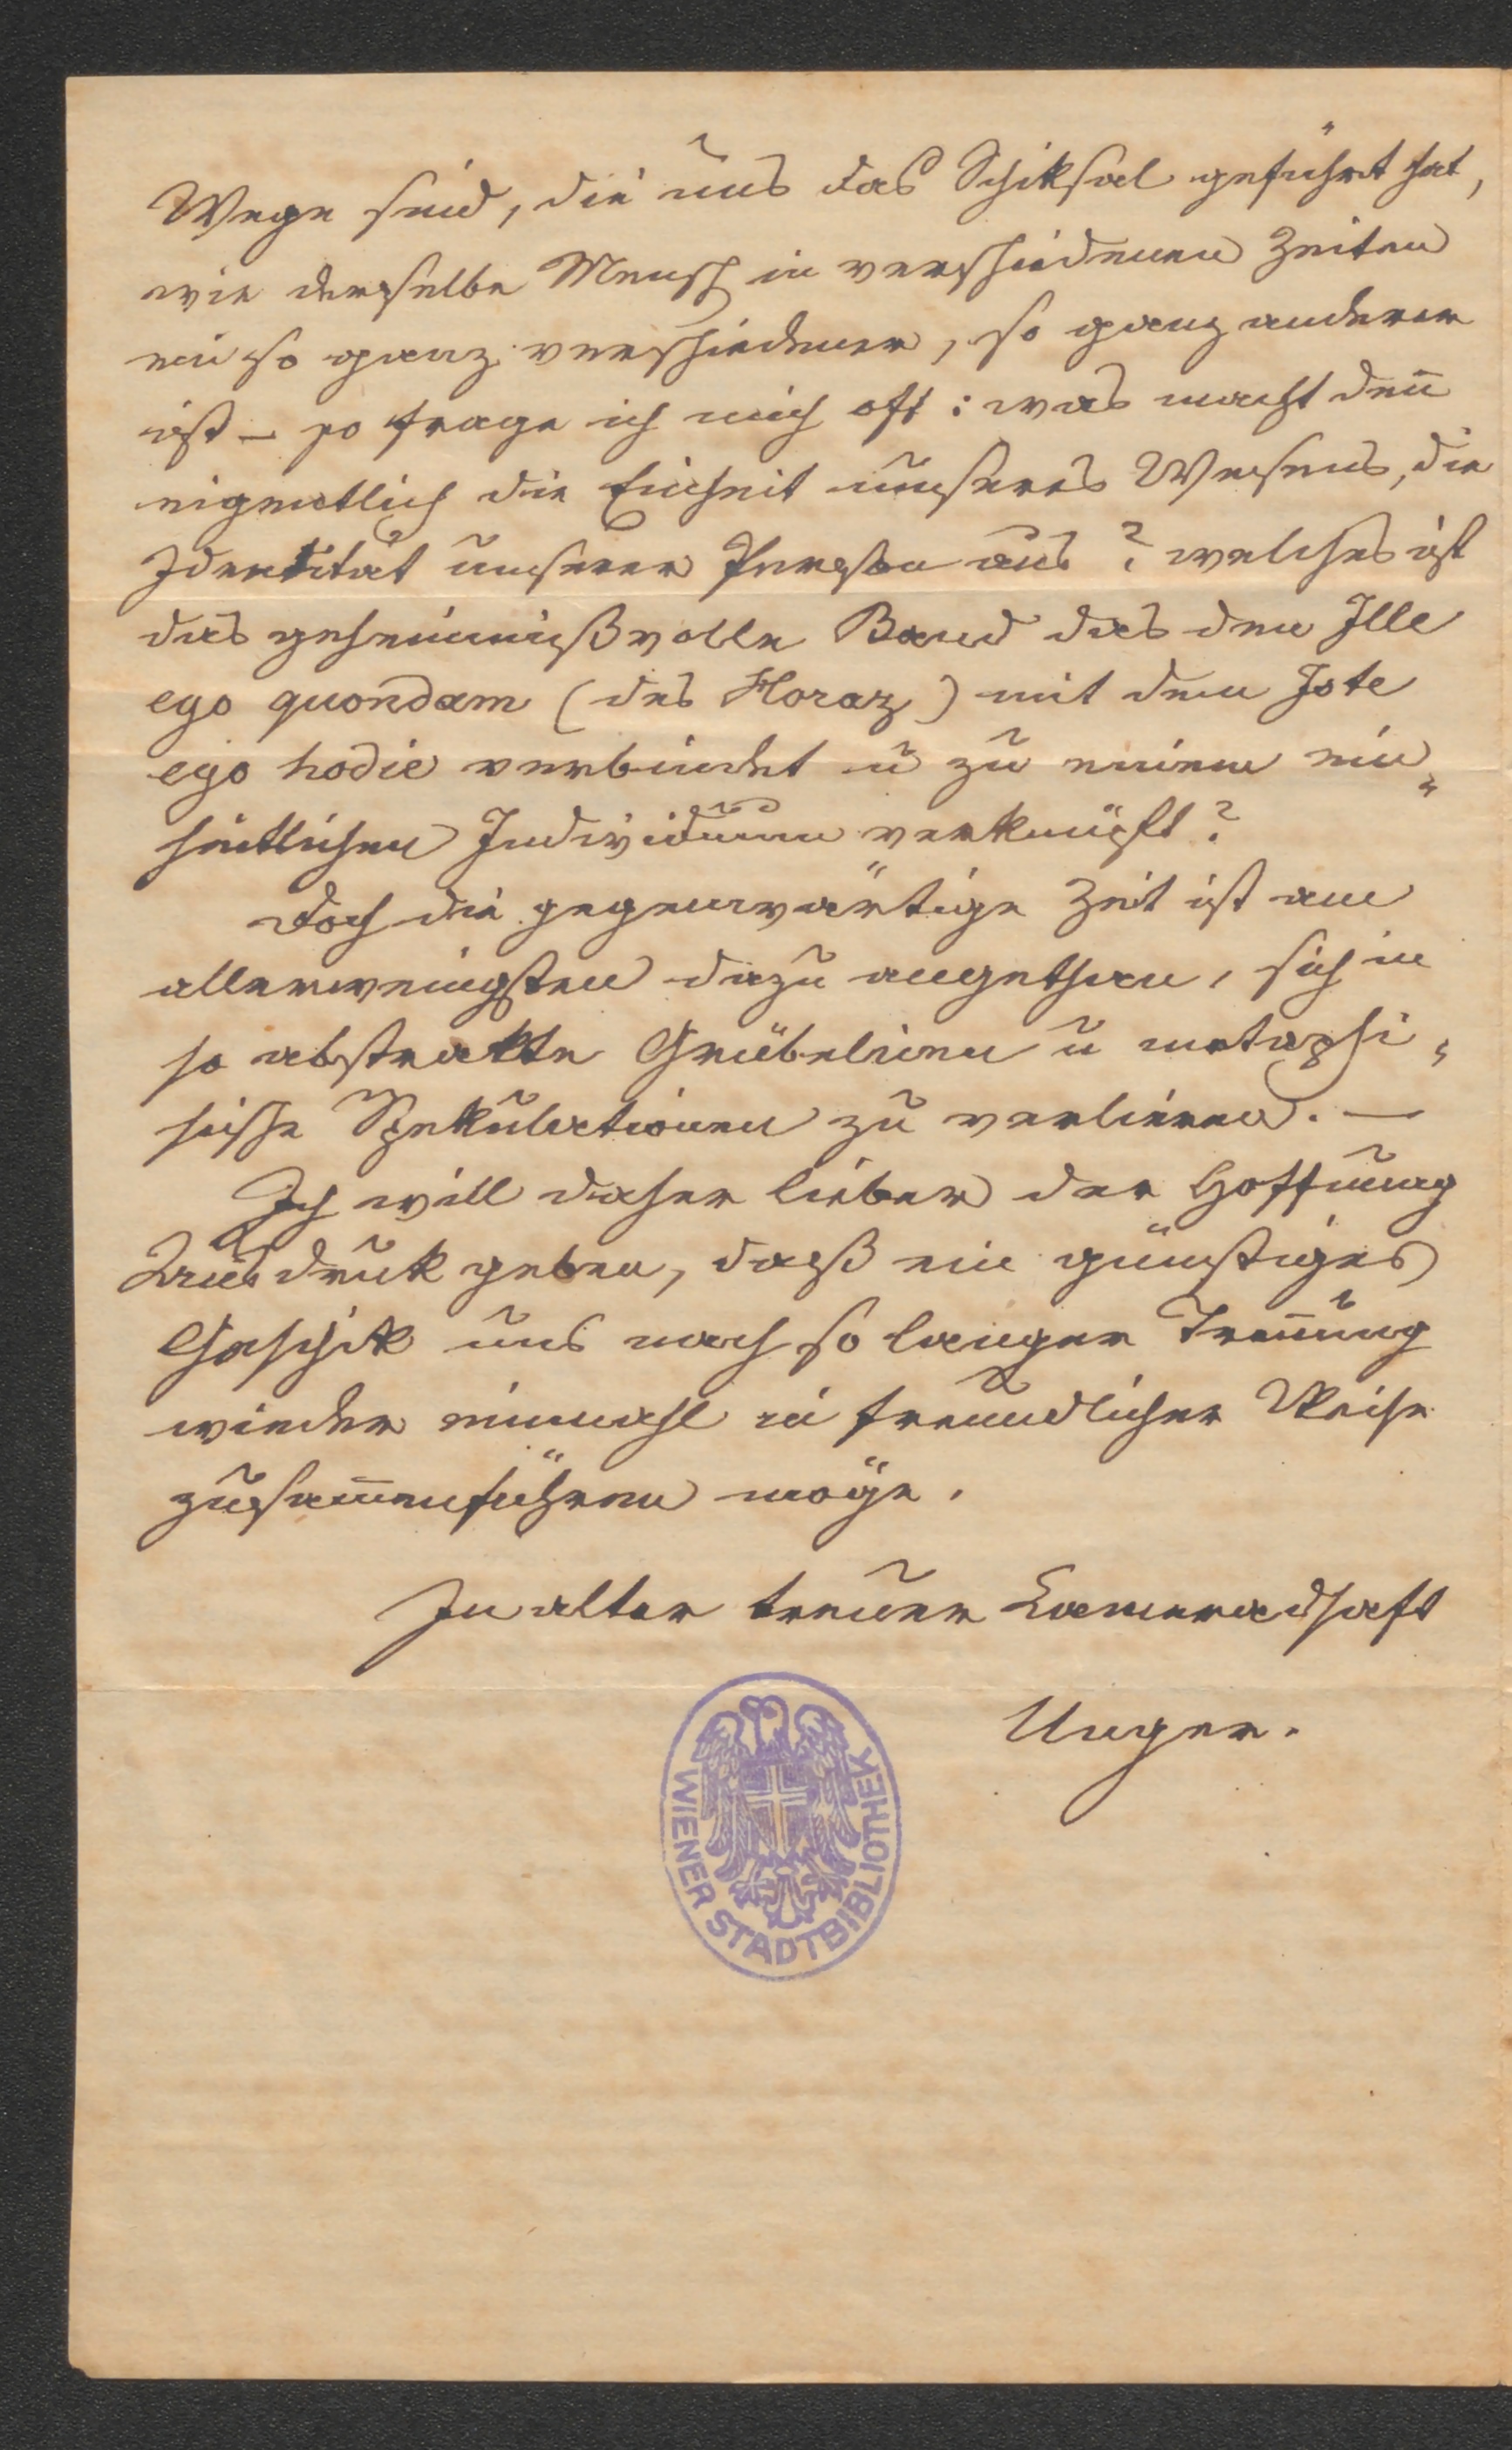 Wege sind, die uns das Schiksal geführt hat,
wie derselbe Mensch in verschiedenen Zeiten
ein so ganz verschiedener, so ganz anderer
ist – so frage ich mich oft: was macht den̄
eigentlich die Einheit unseres Wesens, die
Identität unserer Person aus? welches ist
das geheimnißvolle Band das den Ille
ego quondam (des Horaz) mit dem Iste
ego hodie verbindet u zu einem ein„
heitlichen Individuum verknüpft?
Doch die gegenwärtige Zeit ist am
allerwenigsten dazu angethan, sich in
so abstrakte Grübeleien u metaphi„
sische Spekulationen zu verlieren. —
Ich will daher lieber der Hoffnung
Ausdruk geben, daß ein günstiges
Geschik uns nach so langer Tren̄ung
wieder einmahl in freundlicher Weise
zusam̄enführen möge.
In alter treuer Kameradschaft
Unger.
WIENER STADTBIBLIOTHEK